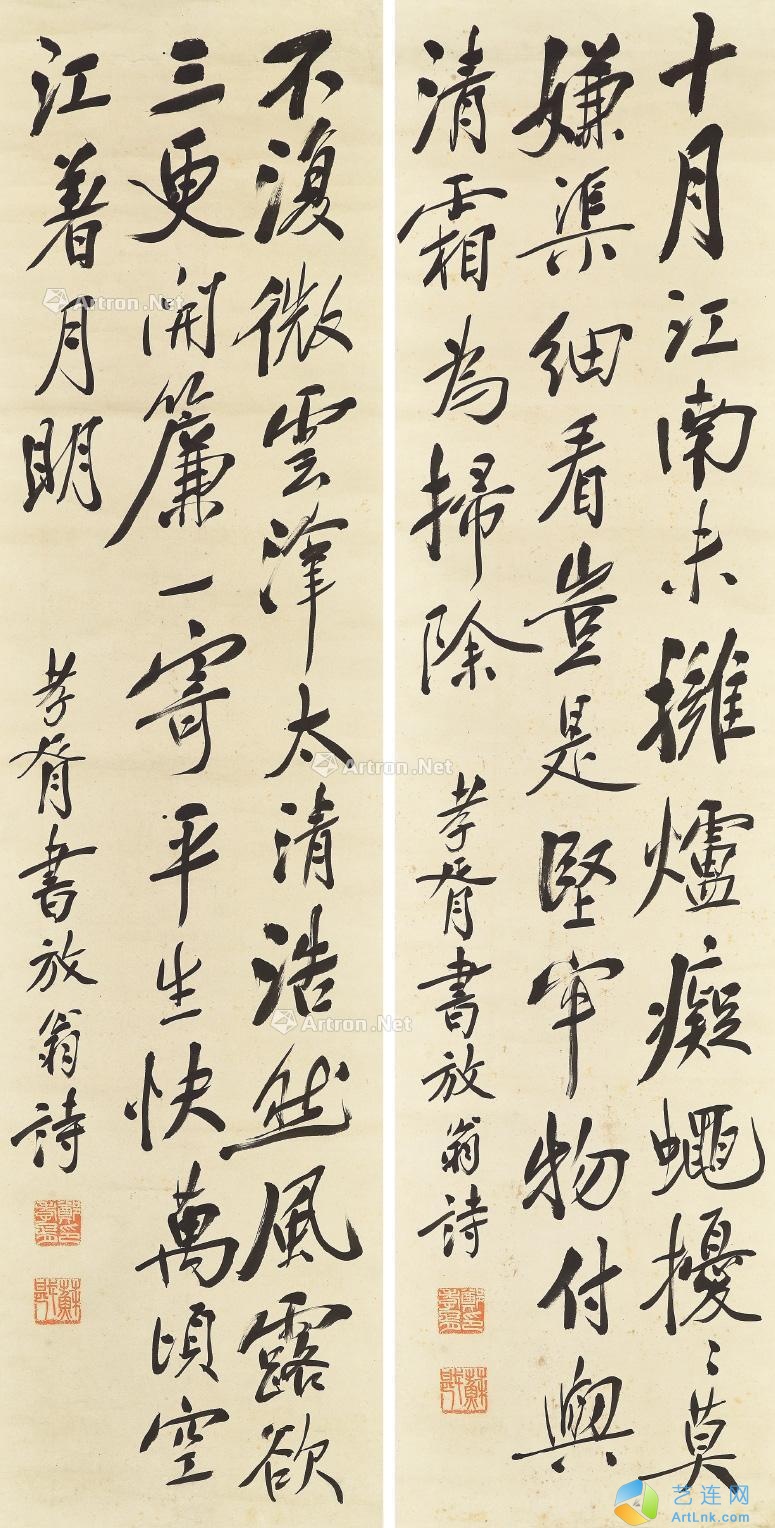 十月江南未擁爐癡蠅擾〻莫
嫌渠細看豈是堅牢物付與
清霜為掃除
孝胥書放翁詩
不復微雲滓太清浩然風露欲
三更開簾一寄平生快萬頃空
江著月明
孝胥書放翁詩
Artron.Net
Artron.Net
Artron.Net
艺连网
ArtLnk.com